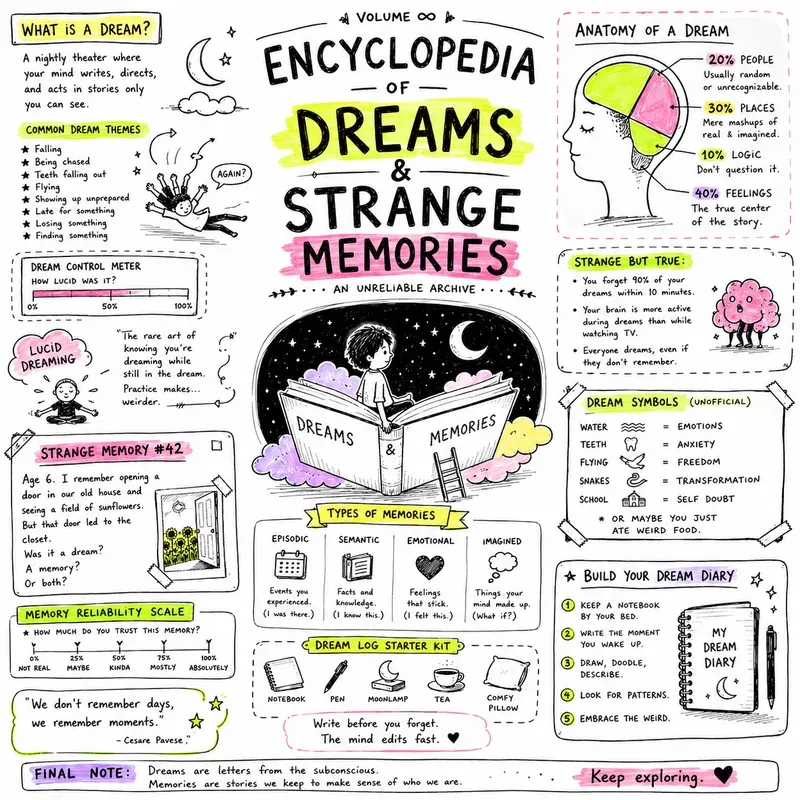 VOLUME ∞
ENCYCLOPEDIA
OF
DREAMS
&
STRANGE
MEMORIES
AN UNRELIABLE ARCHIVE
WHAT IS A DREAM?
A nightly theater where
your mind writes, directs,
and acts in stories only
you can see.
COMMON DREAM THEMES
★ Falling
★ Being chased
★ Teeth falling out
★ Flying
★ Showing up unprepared
★ Late for something
★ Losing something
★ Finding something
AGAIN?
DREAM CONTROL METER
HOW LUCID WAS IT?
0% 50% 100%
LUCID
DREAMING
"The rare art of
knowing you're
dreaming while
still in the dream.
Practice makes...
weirder.
STRANGE MEMORY #42
Age 6. I remember opening a
door in our old house and
seeing a field of sunflowers.
But that door led to the
closet.
Was it a dream?
A memory?
Or both?
MEMORY RELIABILITY SCALE
★ HOW MUCH DO YOU TRUST THIS MEMORY?
0% 25% 50% 75% 100%
NOT REAL MAYBE KINDA MOSTLY ABSOLUTELY
"We don't remember days,
we remember moments."
- Cesare Pavese,
DREAMS
&
MEMORIES
TYPES OF MEMORIES
EPISODIC
Events you
experienced.
(I was there.)
SEMANTIC
Facts and
knowledge.
(I know this.)
EMOTIONAL
Feelings
that stick.
(I felt this.)
IMAGINED
Things your
mind made up.
(What if?)
DREAM LOG STARTER KIT
NOTEBOOK
PEN
MOONLAMP
TEA
COMFY
PILLOW
Write before you forget.
The mind edits fast. ♥
ANATOMY OF A DREAM
20% PEOPLE
Usually random
or unrecognizable.
30% PLACES
Mere mashups of
real & imagined.
10% LOGIC
Don't question it.
40% FEELINGS
The true center
of the story.
STRANGE BUT TRUE:
• You forget 90% of your
dreams within 10 minutes.
• Your brain is more active
during dreams than while
watching TV.
• Everyone dreams, even if
they don't remember.
DREAM SYMBOLS (UNOFFICIAL)
WATER = EMOTIONS
TEETH = ANXIETY
FLYING = FREEDOM
SNAKES = TRANSFORMATION
SCHOOL = SELF DOUBT
* OR MAYBE YOU JUST
ATE WEIRD FOOD.
★ BUILD YOUR DREAM DIARY
1 KEEP A NOTEBOOK
BY YOUR BED.
2 WRITE THE MOMENT
YOU WAKE UP.
3 DRAW, DOODLE,
DESCRIBE.
4 LOOK FOR PATTERNS.
5 EMBRACE THE WEIRD.
MY
DREAM
DIARY
FINAL NOTE:
Dreams are letters from the subconscious.
Memories are stories we keep to make sense of who we are.
Keep exploring. ♥